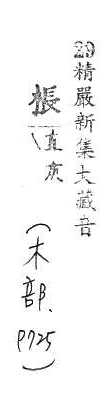 29精嚴新集大藏音
棖直庚
（木部.P725）